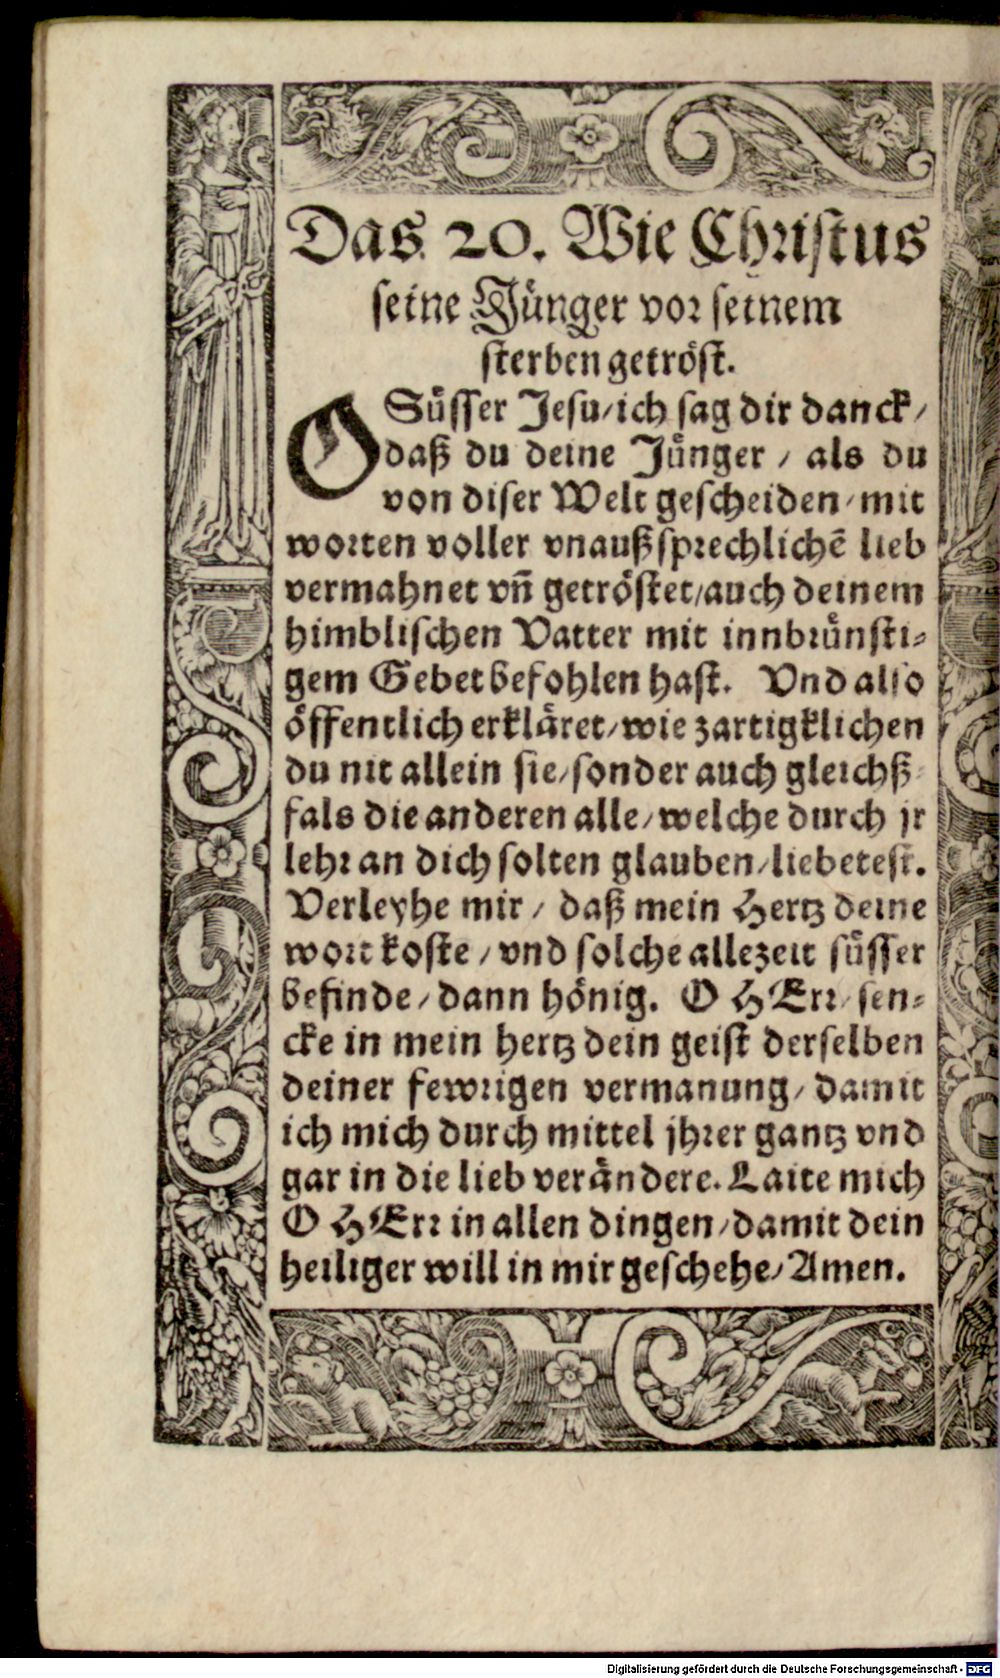 Das 20. Wie Chriſtus
ſeine Jünger vor ſeinem
ſterben getröſt.
O Süſſer Jeſu/ ich ſag dir danck/
daß du deine Jünger / als du
von diſer Welt geſcheiden/ mit
worten voller vnaußſprechlichē lieb
vermahnet vñ getröſtet/ auch deinem
himbliſchen Vatter mit innbrünſti⸗
gem Gebet befohlen haſt. Vnd alſo
öffentlich erkläret/ wie zartigklichen
du nit allein ſie/ ſonder auch gleichß⸗
fals die anderen alle/ welche durch jr
lehr an dich ſolten glauben/ liebeteſt.
Verleyhe mir / daß mein Hertz deine
wort koſte / vnd ſolche allezeit ſüſſer
befinde/ dann hönig. O HErr/ ſen⸗
cke in mein hertz dein geiſt derſelben
deiner fewrigen vermanung/ damit
ich mich durch mittel jhrer gantz vnd
gar in die lieb verändere. Laite mich
O HErr in allen dingen/ damit dein
heiliger will in mir geſchehe/ Amen.
Digitalisierung gefördert durch die Deutsche Forschungsgemeinschaft - DFG